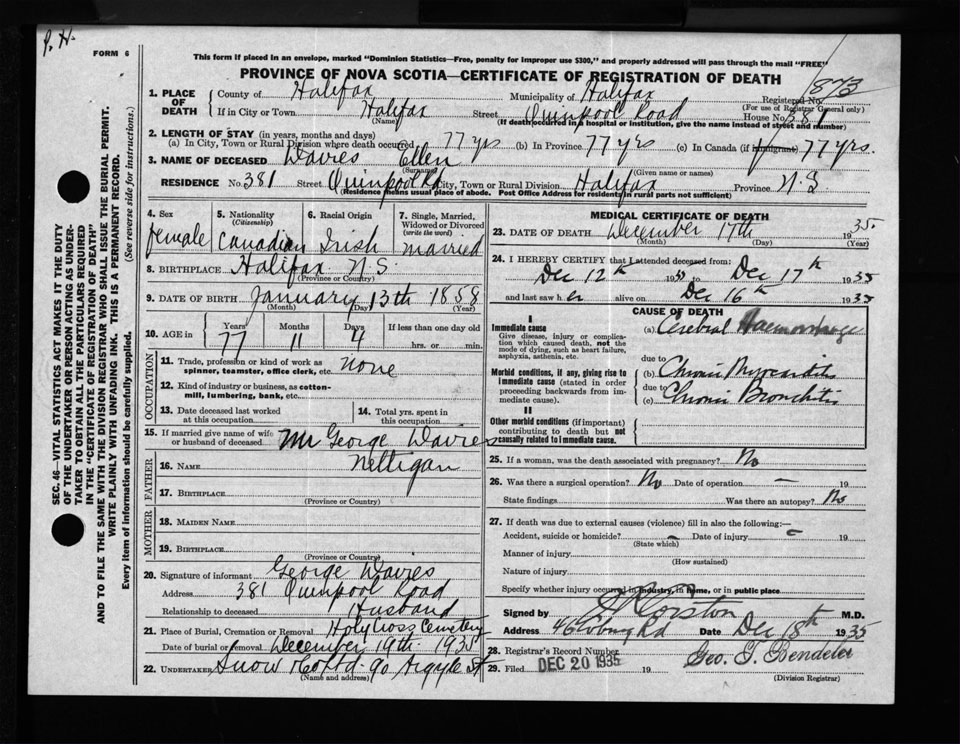 P. H.
FORM 6
This form if placed in an envelope, marked "Dominion Statistics—Free, penalty for improper use $300," and properly addressed will pass through the mail "FREE"
PROVINCE OF NOVA SCOTIA—CERTIFICATE OF REGISTRATION OF DEATH
1873
1. PLACE OF DEATH
County of Halifax Municipality of Halifax Registered No.
(For use of Registrar General only)
If in City or Town Halifax Street Quinpool Road House No. 381
(Name) (If death occurred in a hospital or institution, give the name instead of street and number)
2. LENGTH OF STAY (in years, months and days)
(a) In City, Town or Rural Division where death occurred 77 yrs (b) In Province 77 yrs (c) In Canada (if immigrant) 77 yrs.
3. NAME OF DECEASED Davies Ellen
(Surname) (Given name or names)
RESIDENCE No. 381 Street Quinpool Rd City, Town or Rural Division Halifax Province N.S
(Residence means usual place of abode. Post Office Address for residents in rural parts not sufficient)
4. Sex
female
5. Nationality
(Citizenship)
Canadian
6. Racial Origin
Irish
7. Single, Married, Widowed or Divorced
(write the word)
married
8. BIRTHPLACE Halifax N.S.
9. DATE OF BIRTH January 13th 1858
(Month) (Day) (Year)
10. AGE in
Years Months Days If less than one day old
77 11 4 hrs. or min.
OCCUPATION
11. Trade, profession or kind of work as spinner, teamster, office clerk, etc. none
12. Kind of industry or business, as cotton-mill, lumbering, bank, etc.
13. Date deceased last worked at this occupation
14. Total yrs. spent in this occupation
15. If married give name of wife or husband of deceased Mr George Davies
FATHER
16. NAME Nelligan
17. BIRTHPLACE
(Province or Country)
MOTHER
18. MAIDEN NAME
19. BIRTHPLACE
(Province or Country)
20. Signature of informant George Davies
Address 381 Quinpool Road
Relationship to deceased Husband
21. Place of Burial, Cremation or Removal Holy Cross Cemetery
Date of burial or removal December 19th 1935
22. UNDERTAKER Snow & Co Ltd. 90 Argyle St
(Name and address)
MEDICAL CERTIFICATE OF DEATH
23. DATE OF DEATH December 17th 1935
(Month) (Day) (Year)
24. I HEREBY CERTIFY that I attended deceased from:
Dec 12th 1935 to Dec 17th 1935
and last saw her alive on Dec 16th 1935
CAUSE OF DEATH
I
Immediate cause
Give disease, injury or complication which caused death, not the mode of dying, such as heart failure, asphyxia, asthenia, etc.
(a) Cerebral Haemorrhage
due to
Morbid conditions, if any, giving rise to immediate cause (stated in order proceeding backwards from immediate cause).
(b) Chronic Myocarditis
due to
(c) Chronic Bronchitis
II
Other morbid conditions (if important) contributing to death but not causally related to immediate cause.
25. If a woman, was the death associated with pregnancy? No
26. Was there a surgical operation? No Date of operation — 19
State findings Was there an autopsy? No
27. If death was due to external causes (violence) fill in also the following:—
Accident, suicide or homicide? — Date of injury — 19
(State which)
Manner of injury
(How sustained)
Nature of injury
Specify whether injury occurred in industry, in home, or in public place
Signed by Corston M.D.
Address 46 Coburg Rd Date Dec 18th 1935
28. Registrar's Record Number
29. Filed DEC 20 1935 19
Geo. T. Bendeler
(Division Registrar)
SEC. 46—VITAL STATISTICS ACT MAKES IT THE DUTY
OF THE UNDERTAKER OR PERSON ACTING AS UNDER-
TAKER TO OBTAIN ALL THE PARTICULARS REQUIRED
IN THE "CERTIFICATE OF REGISTRATION OF DEATH"
AND TO FILE THE SAME WITH THE DIVISION REGISTRAR WHO SHALL ISSUE THE BURIAL PERMIT.
WRITE PLAINLY WITH UNFADING INK. THIS IS A PERMANENT RECORD.
Every item of information should be carefully supplied. (See reverse side for instructions.)